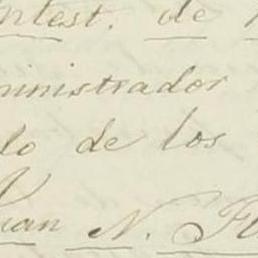 ntest. de
ministrador
do de los
uan N. Fl